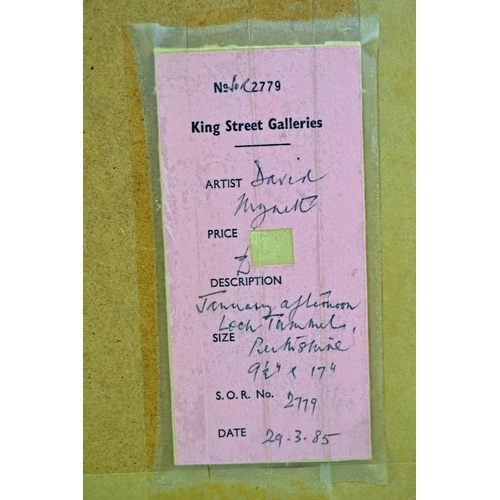 No SoR 2779
King Street Galleries
ARTIST David
Mynett
PRICE
£
DESCRIPTION
January afternoon
Loch Tummel,
SIZE Perthshire
9½" x 17"
S.O.R. No. 2779
DATE 29.3.85